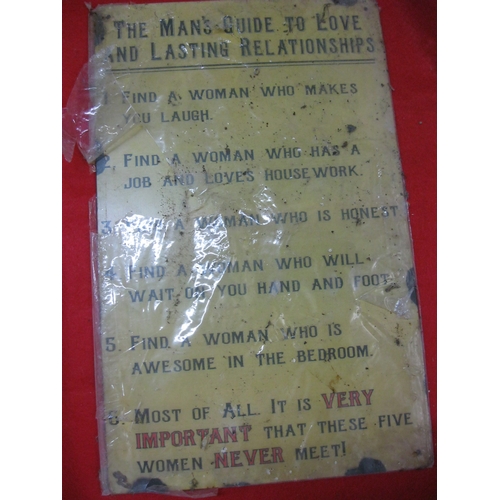 THE MAN'S GUIDE TO LOVE
AND LASTING RELATIONSHIPS
1. FIND A WOMAN WHO MAKES
YOU LAUGH.
2. FIND A WOMAN WHO HAS A
JOB AND LOVES HOUSEWORK.
3. FIND A WOMAN WHO IS HONEST
4. FIND A WOMAN WHO WILL
WAIT ON YOU HAND AND FOOT
5. FIND A WOMAN WHO IS
AWESOME IN THE BEDROOM.
6. MOST OF ALL. IT IS VERY
IMPORTANT THAT THESE FIVE
WOMEN NEVER MEET!